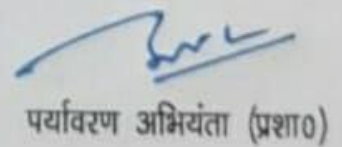 पर्यावरण अभियंता (प्रशा०)